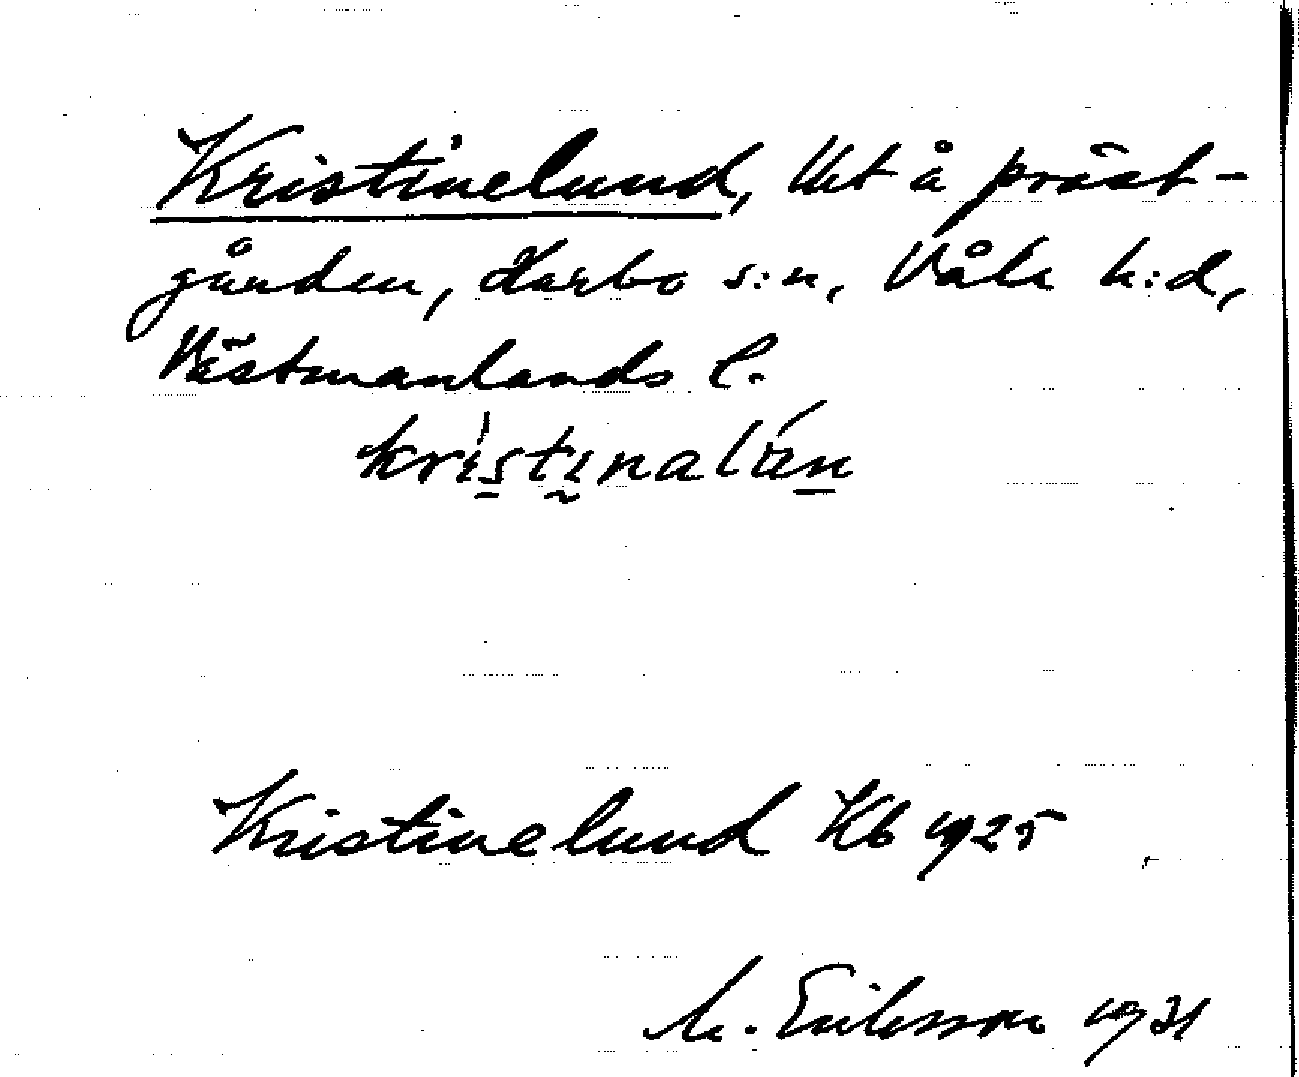 Kristinelund, lht å präst-
gården, Harbo s:n, Våla h:d,
Västmanlands l.
kristinalún
Kristinelund Kb 1925
M. Eriksson 1931